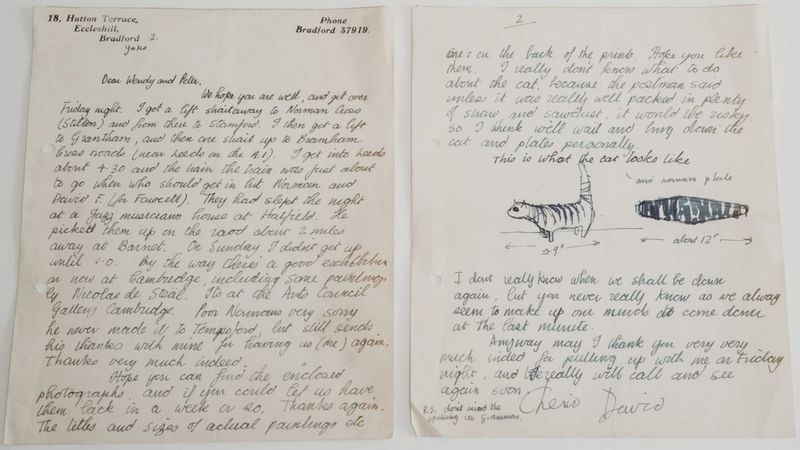 18, Hutton Terrace,
Eccleshill,
Bradford 2.
Yorks
Phone
Bradford 37919.
Dear Wendy and Peter,
We hope you are well, and got over
Friday night. I got a lift straitaway to Norman Cross
(Stilton) and from there to Stamford. I then got a lift
to Grantham, and then one strait up to Bramham
Cross roads (near Leeds on the A.1). I got into Leeds
about 4.30 and the train the train was just about
to go when who should get in but Norman and
David F. (for Fawcett). They had slept the night
at a Jazz musicians house at Hatfield. He
picked them up on the road about 2 miles
away at Barnet. On Sunday I didn't get up
until 1.0. By the way there's a good exchibition
on now at Cambridge, including some paintings
by Nicolas de Stael. Its at the Arts Council
Gallery Cambridge. Poor Normans very sorry
he never made it to Tempsford, but still sends
his thanks with mine for having us (me) again.
Thanks very much indeed.
Hope you can find the enclosed
photographs, and if you could let us have
them back in a week or so. Thanks again.
The titles and sizes of actual paintings etc
2
are on the back of the prints. Hope you like
them. I really dont know what to do
about the cat, because the postman said
unless it was really well packed in plenty
of straw and sawdust, it would be risky
so I think we'll wait and bring down the
cat and plates personally.
This is what the cat looks like
and normans plate
9"
about 12"
I dont really know when we shall be down
again, but you never really know as we always
seem to make up our minds to come down
at the last minute.
Anyway may I thank you very very
much inded for putting up with me on Friday
night, and we really will call and see
again soon.
Cherio David
P.S. dont mind the
spelling or Grammar.